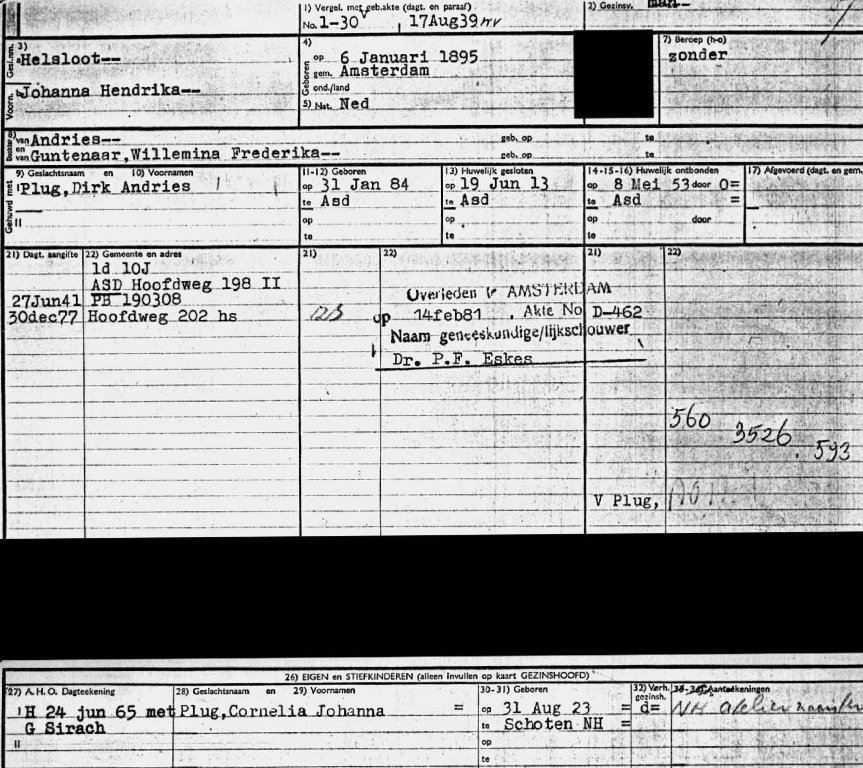 1) Vergel. met geb.akte (dagt. en paraaf)
No. 1-30 , 17Aug39
2) Gezinsv. man--
3) Helsloot--
Gesl.nm.
Voorn. Johanna Hendrika--
4) Geboren
op 6 Januari 1895
gem. Amsterdam
ond./land
5) Nat. Ned
7) Beroep (h-o)
zonder
van Andries-- geb. op te
en van Guntenaar,Willemina Frederika-- geb. op te
Gehuwd met
9) Geslachtsnaam en 10) Voornamen
I Plug,Dirk Andries
II
11-12) Geboren
op 31 Jan 84
te Asd
op
te
13) Huwelijk gesloten
op 19 Jun 13
te Asd
op
te
14-15-16) Huwelijk ontbonden
op 8 Mei 53 door O=
te Asd =
op door
te
17) Afgevoerd (dagt. en gem.
21) Dagt. aangifte 22) Gemeente en adres
1d 10J
ASD Hoofdweg 198 II
27Jun41 PB 190308
30dec77 Hoofdweg 202 hs
21) 22)
Overleden te AMSTERDAM
op 14feb81 . Akte No D-462
Naam geneeskundige/lijkschouwer
Dr. P.F. Eskes
21) 22)
560 3526 593
V Plug,
26) EIGEN en STIEFKINDEREN (alleen invullen op kaart GEZINSHOOFD)
27) A. H. O. Dagteekening 28) Geslachtsnaam en 29) Voornamen 30-31) Geboren 32) Verh. gezinsh. Aanteekeningen
I H 24 jun 65 met Plug,Cornelia Johanna = op 31 Aug 23 = d= NH
G Sirach te Schoten NH =
II op
te